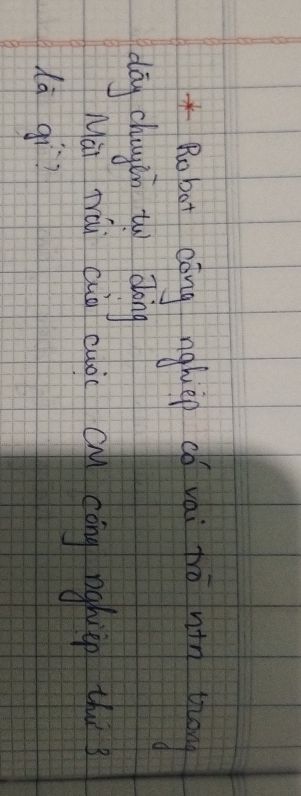 * Robot công nghiệp có vai trò ntn trong
dây chuyền tự động
Mặt trái của cuộc CM công nghiệp thứ 3
là gì?